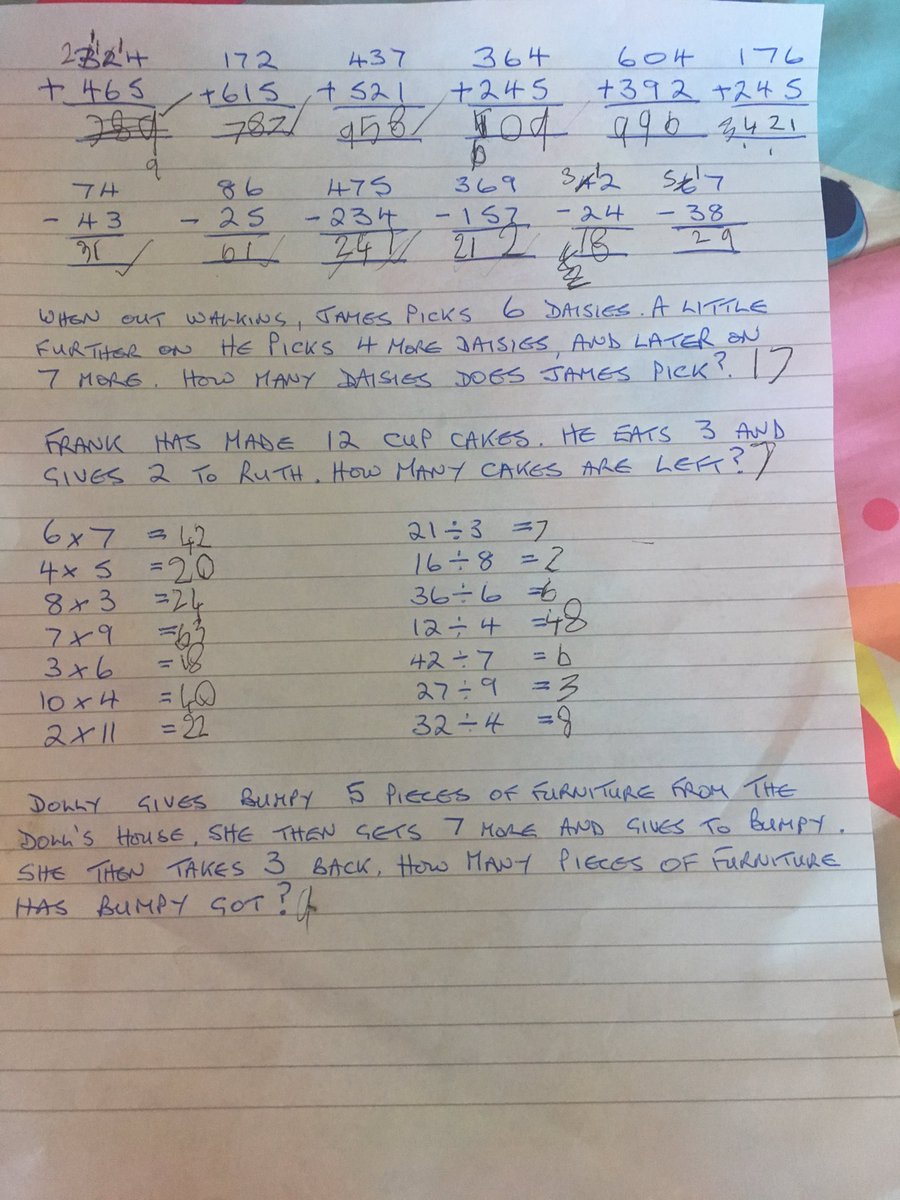 324 172 437 364 604 176
+ 465 +615 + 521 +245 +392 +245
789 782 958 609 996 421
9
74 86 475 369 342 5617
- 43 - 25 -234 -157 -24 -38
31 61 241 212 18 29
WHEN OUT WALKING, JAMES PICKS 6 DAISIES. A LITTLE
FURTHER ON HE PICKS 4 MORE DAISIES, AND LATER ON
7 MORE. HOW MANY DAISIES DOES JAMES PICK? 17
FRANK HAS MADE 12 CUP CAKES. HE EATS 3 AND
GIVES 2 TO RUTH. HOW MANY CAKES ARE LEFT? 7
6 x 7 = 42 21 ÷ 3 = 7
4 x 5 = 20 16 ÷ 8 = 2
8 x 3 = 24 36 ÷ 6 = 6
7 x 9 = 63 12 ÷ 4 = 48
3 x 6 = 18 42 ÷ 7 = 6
10 x 4 = 40 27 ÷ 9 = 3
2 x 11 = 22 32 ÷ 4 = 8
DOLLY GIVES BUMPY 5 PIECES OF FURNITURE FROM THE
DOLL'S HOUSE. SHE THEN GETS 7 MORE AND GIVES TO BUMPY.
SHE THEN TAKES 3 BACK. HOW MANY PIECES OF FURNITURE
HAS BUMPY GOT? 9